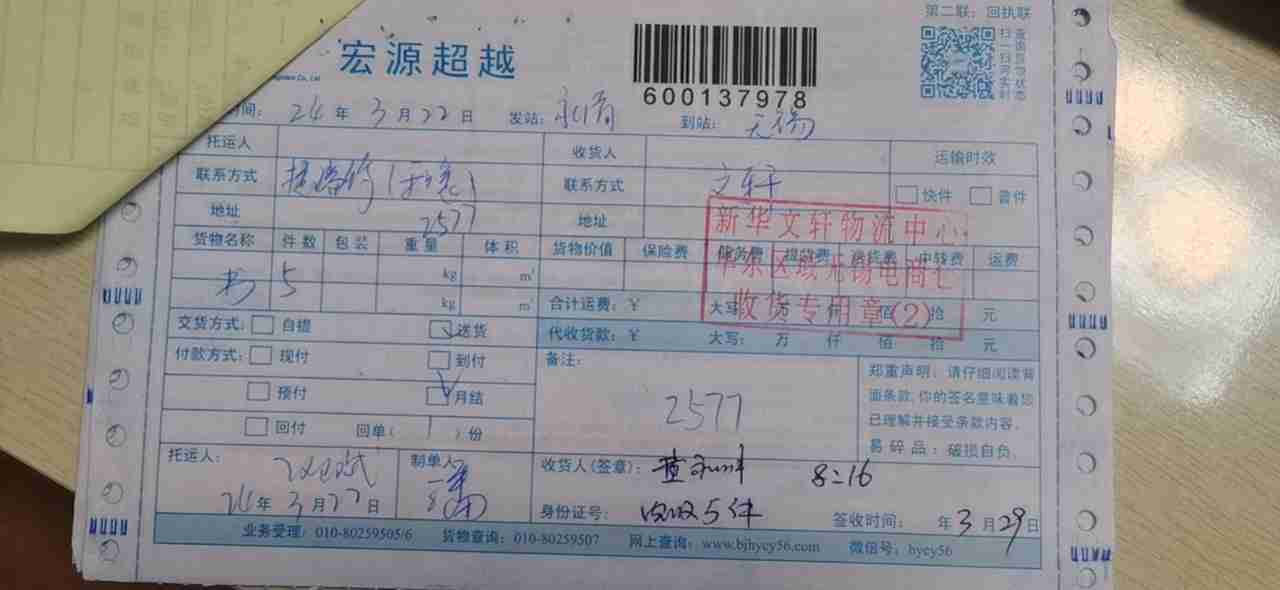 第二联：回执联
宏源超越
600137978
扫一扫
查询货物状态
间： 24 年 3 月 22 日 发站： 到站： 无锡
托运人 收货人 运输时效
联系方式 联系方式 文轩 快件 普件
地址 2577 地址
新华文轩物流中心
货物名称 件数 包装 重量 体积 货物价值 保险费 提货费 中转费 运费
华东区域无锡电商仓
书 5 kg m³
kg m³ 合计运费：￥ 大写 佰 拾 元
收货专用章(2)
交货方式： 自提 送货 代收货款：￥ 大写： 万 仟 佰 拾 元
付款方式： 现付 到付 备注：
预付 月结 2577
回付 回单( 1 )份
郑重声明：请仔细阅读背
面条款,你的签名意味着您
已理解并接受条款内容。
易碎品：破损自负。
托运人： 制单人 收货人(签章)： 8:16
24 年 3 月 22 日 身份证号： 实收5件 签收时间： 年 3 月 29 日
业务受理：010-80259505/6 货物查询：010-80259507 网上查询：www.bjhycy56.com 微信号：hycy56